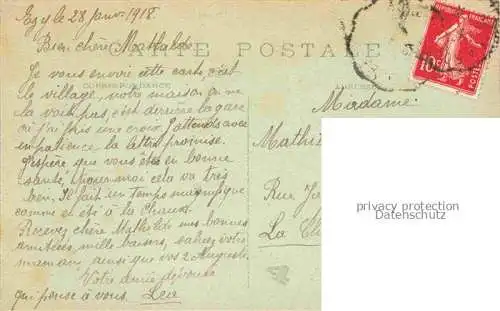 Ezy le 28 janv. 1918.
Bien chère Mathilde
CARTE POSTALE
Je vous envoie cette carte, c'est
le village, notre maison on ne
CORRESPONDANCE
la voit pas, c'est derrière la gare
où j'ai fais une croix. J'attends avec
impatience la lettre promise.
J'espère que vous êtes en bonne
santé, pour moi cela va très
bien. Il fait un temps magnifique
comme et été à la Chaux.
Recevez chère Mathilde mes bonnes
amitiées, mille baisers, saluez votre
maman, ainsi que vos 2 Augustes.
Votre amie dévouée
qui pense à vous. Lea
ADRESSE
Madame
Mathi
Rue Ja
La
10
POSTES
privater
Datenschutz